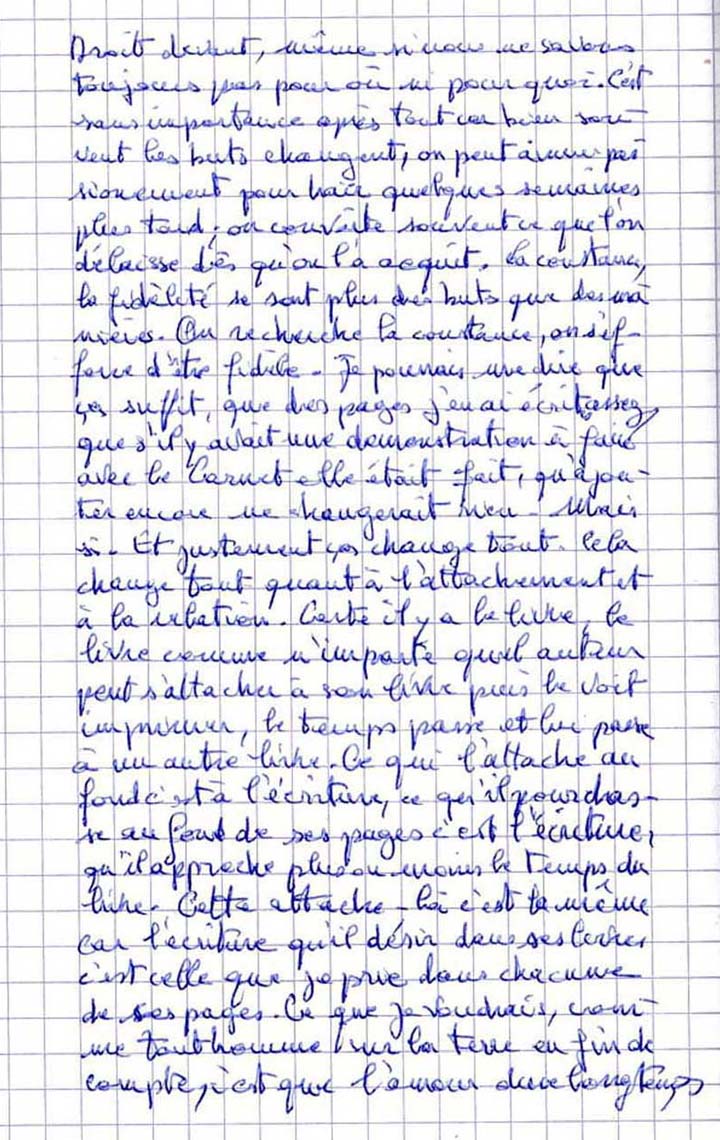 Droit devant, même si nous ne savons
toujours pas pour où ni pour quoi. C'est
sans importance après tout car bien sou-
vent les buts changent, on peut aimer pas-
sionément pour haïr quelques semaines
plus tard ; on convoite souvent ce que l'on
délaisse dès qu'on l'a acquit. La constance,
la fidélité se sont plus des buts que des ma-
nières. On recherche la constance, on s'ef-
force d'être fidèle. Je pourrais me dire que
ça suffit, que des pages j'en ai écrit assez,
que s'il y avait une démonstration à faire
avec le Carnet elle était fait, qu'ajou-
ter encore ne changerait rien. Mais
si. Et justement ça change tout. Cela
change tout quant à l'attachement et
à la relation. Certe il y a le livre, le
livre comme n'importe quel auteur
peut s'attacher à son livre puis le voit
imprimer, le temps passe et lui passe
à un autre livre. Ce qui l'attache au
fond c'est à l'écriture, ce qu'il pourchas-
se au fond de ses pages c'est l'écriture,
qu'il approche plus ou moins le temps du
livre. Cette attache-là c'est la même
car l'écriture qu'il désir dans ses livres
c'est celle que je prie dans chacune
de ses pages. Ce que je voudrais, com-
me tout homme sur la terre en fin de
compte, c'est que l'amour dure longtemps